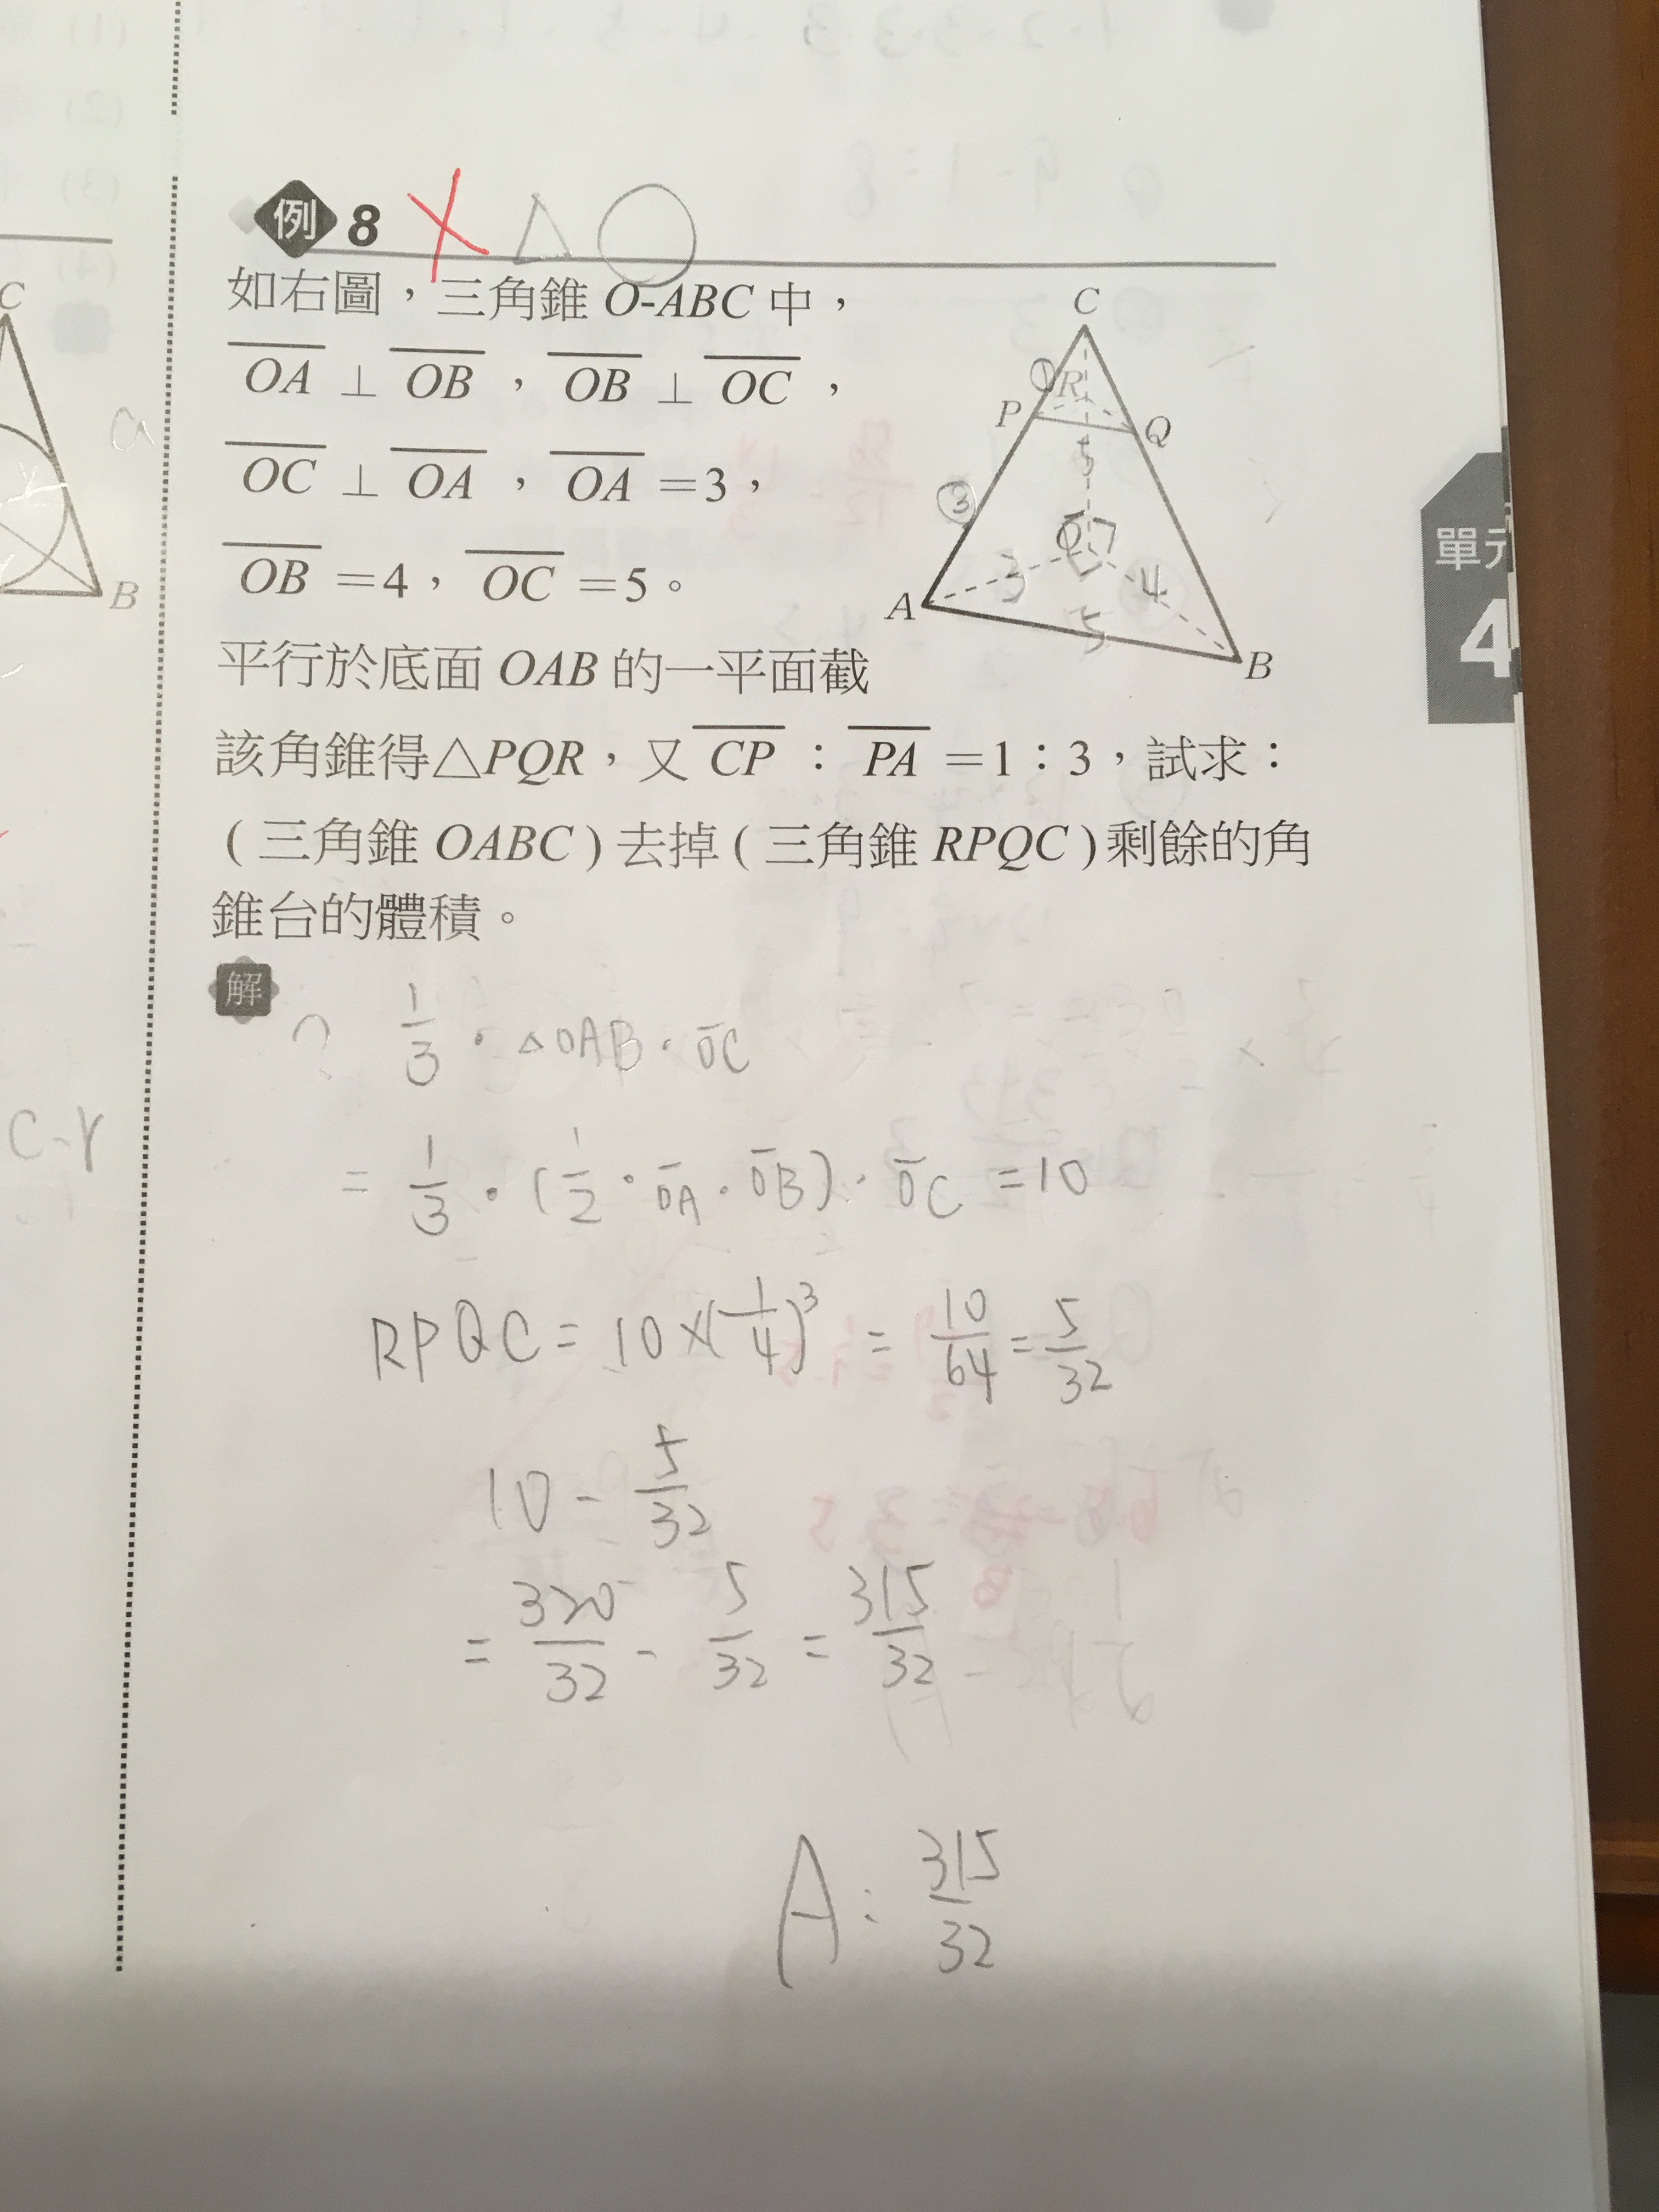 例 8 X △ ○
如右圖，三角錐 O-ABC 中，
OA ⊥ OB，OB ⊥ OC，
OC ⊥ OA，OA =3，
OB =4，OC =5。
平行於底面 OAB 的一平面截
該角錐得△PQR，又 CP：PA =1：3，試求：
(三角錐 OABC) 去掉 (三角錐 RPQC) 剩餘的角
錐台的體積。
C
① R
P Q
5
③
O
3 4
A
5
B
單元
4
C
B
C-r
解
1/3 · △OAB · OC
= 1/3 · (1/2 · OA · OB) · OC = 10
RPQC = 10 × (1/4)³ = 10/64 = 5/32
10 - 5/32
= 320/32 - 5/32 = 315/32
A: 315/32